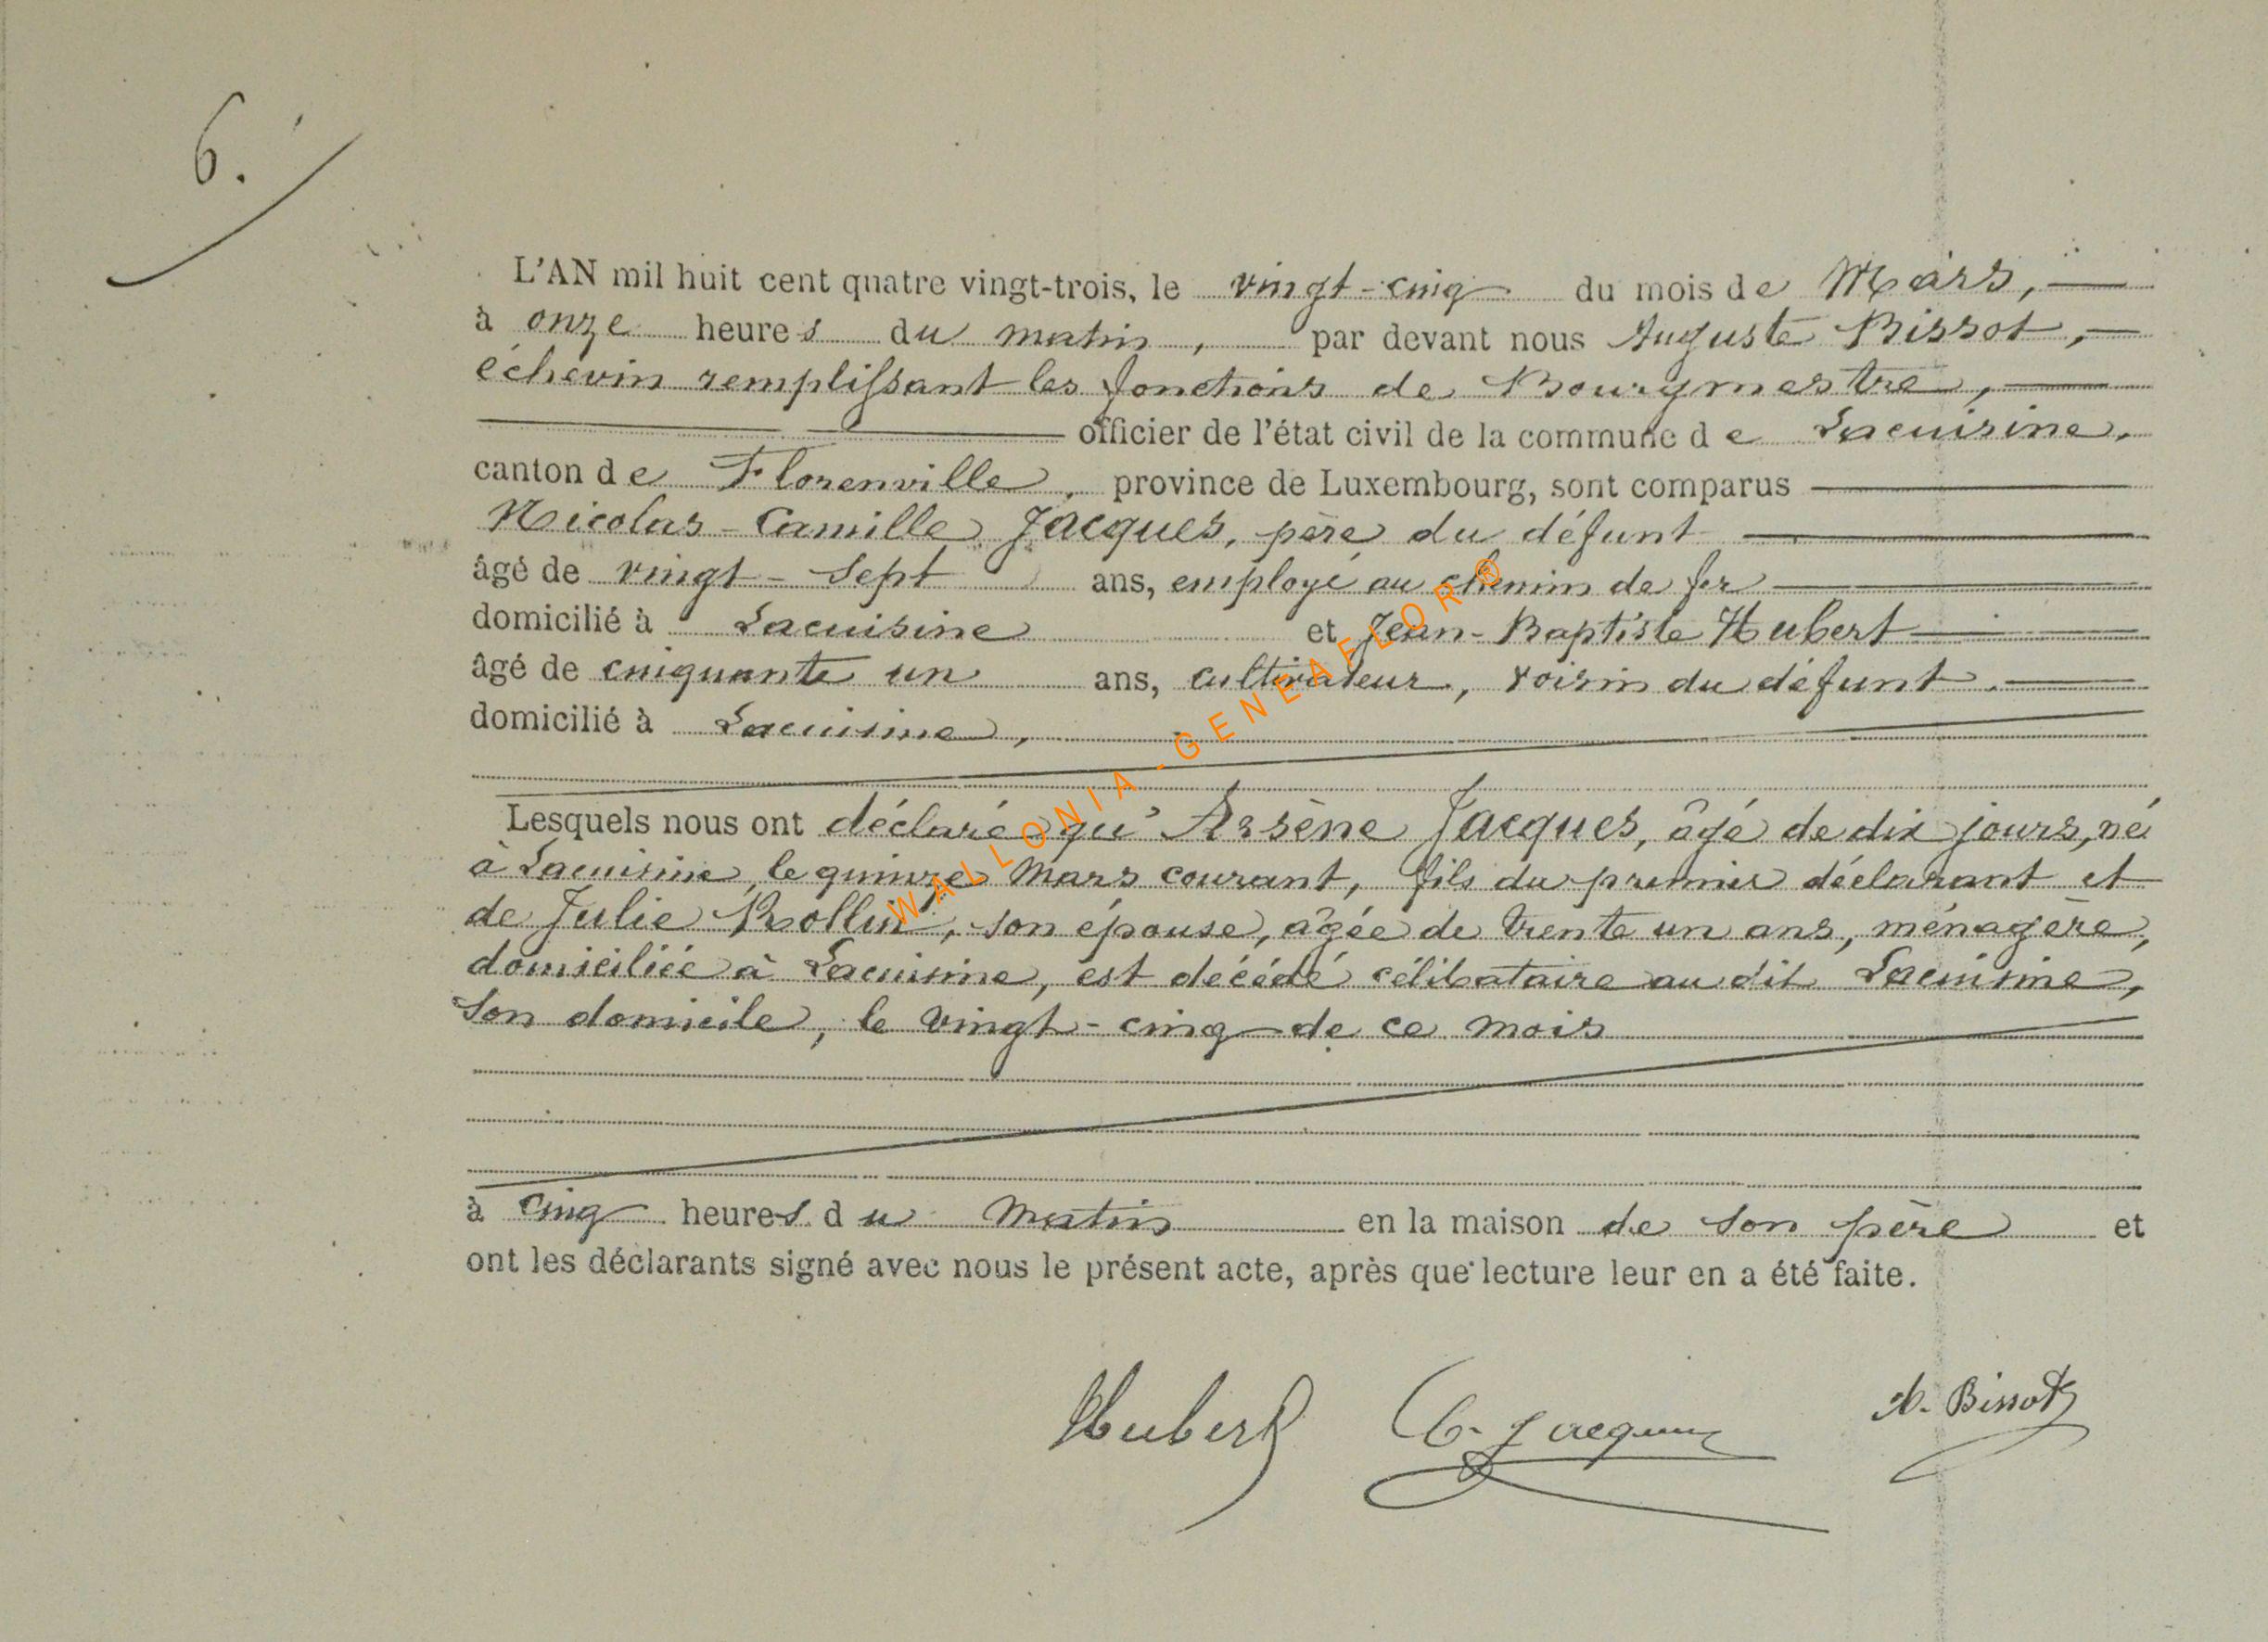 6.
L'AN mil huit cent quatre vingt-trois, le vingt-cinq du mois de Mars,
à onze heures du matin, par devant nous Auguste Bissot,
échevin remplissant les fonctions de Bourgmestre,
officier de l'état civil de la commune de Lacuisine,
canton de Florenville, province de Luxembourg, sont comparus
Nicolas-Camille Jacques, père du défunt
âgé de vingt-sept ans, employé au chemin de fer
domicilié à Lacuisine et Jean-Baptiste Hubert
âgé de cinquante un ans, cultivateur, voisin du défunt.
domicilié à Lacuisine,
Lesquels nous ont déclaré qu'Arsène Jacques, âgé de dix jours, né
à Lacuisine, le quinze Mars courant, fils du premier déclarant et
de Julie Rollin, son épouse, âgée de trente un ans, ménagère,
domiciliée à Lacuisine, est décédé célibataire au dit Lacuisine,
son domicile, le vingt-cinq de ce mois
à cinq heures du matin en la maison de son père et
ont les déclarants signé avec nous le présent acte, après que lecture leur en a été faite.
Hubert C. Jacques A. Bissot
WALLONIA-GENEAFLOR®